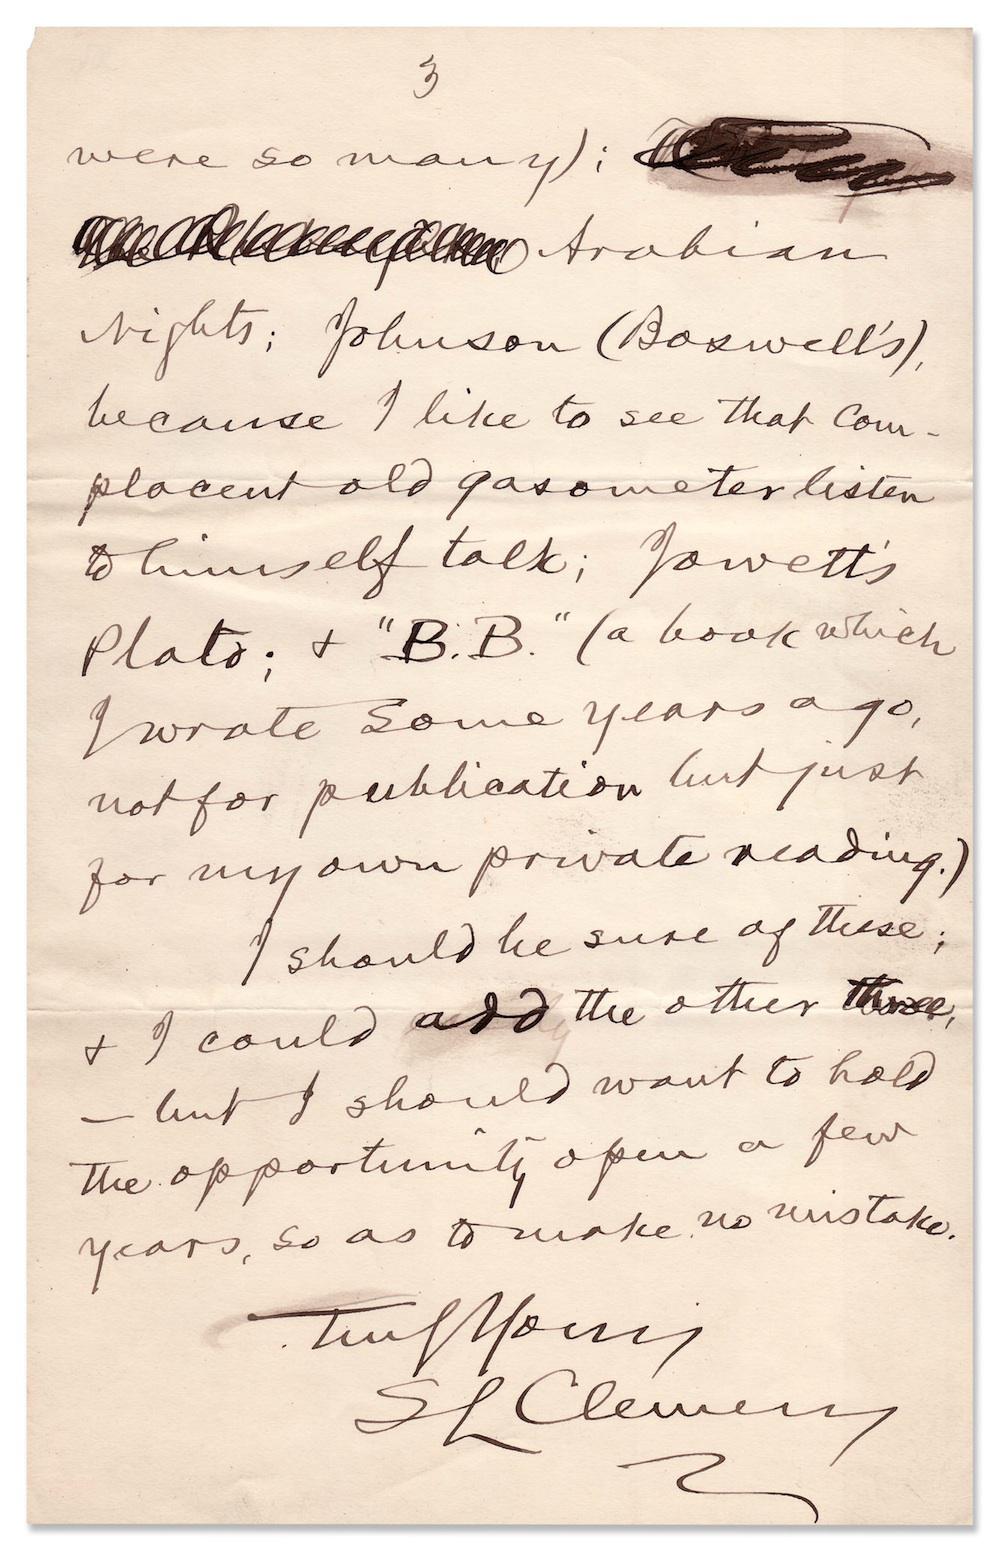 3
were so many);
Arabian
Nights; Johnson (Boswell's),
because I like to see that com-
placent old gasometer listen
to himself talk; Jowett's
Plato; & "B.B." (a book which
I wrote some years ago,
not for publication but just
for my own private reading.)
I should be sure of these;
& I could add the other three,
— but I should want to hold
the opportunity open a few
years, so as to make no mistake.
Truly Yours
SL Clemens